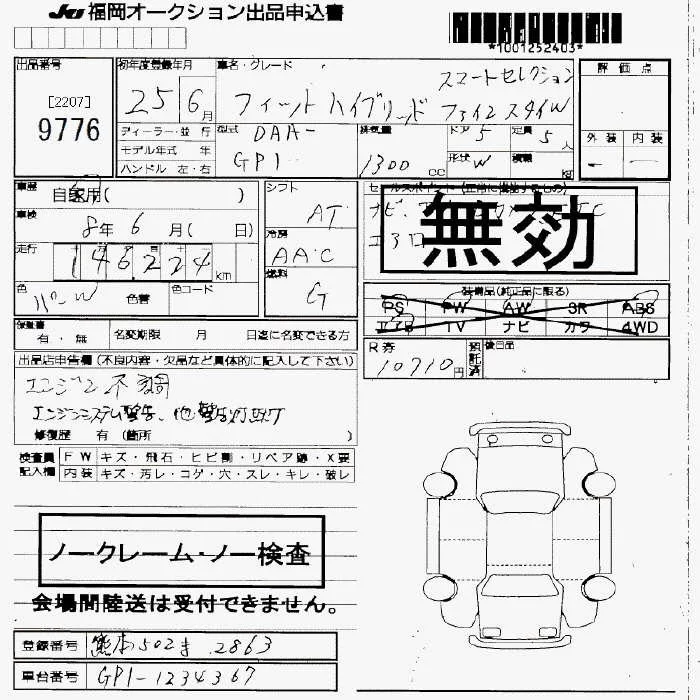 JU 福岡オークション出品申込書
*1001252403*
出品番号 初年度登録年月 車名・グレード 評価点
[2207]
9776
25 6月
スマートセレクション
フィットハイブリッド ファインスタイル
ディーラー・並行 型式 DAA- 排気量 ドア 5 定員 5人 外装 内装
モデル年式 年
ハンドル 左・右 GP1 1300cc 形状 W 積載 kg
車歴 自家用( ) シフト AT セールスポイント(正常に機能するもの)
車検 8年6月( 日) 冷房 AAC ナビ、 ETC
無効
走行 146,224km 燃料 G エアロ
色 パール 色替 色コード
装備品(純正品に限る)
PS PW AW SR ABS
エアB TV ナビ カワ 4WD
保証書 有・無 名変期限 月 日迄に名変できる方
R券 10710円 預託済 後日品
出品店申告欄(不良内容・欠品など具体的に記入して下さい)
エンジン不調
エンジンシステム警告、他警告灯点灯
修復歴 有(箇所 )
検査員記入欄 FW キズ・飛石・ヒビ割・リペア跡・X要
内装 キズ・汚レ・コゲ・穴・スレ・キレ・破レ
ノークレーム・ノー検査
会場間陸送は受付できません。
登録番号 熊本502ま2863
車台番号 GP1-1234367